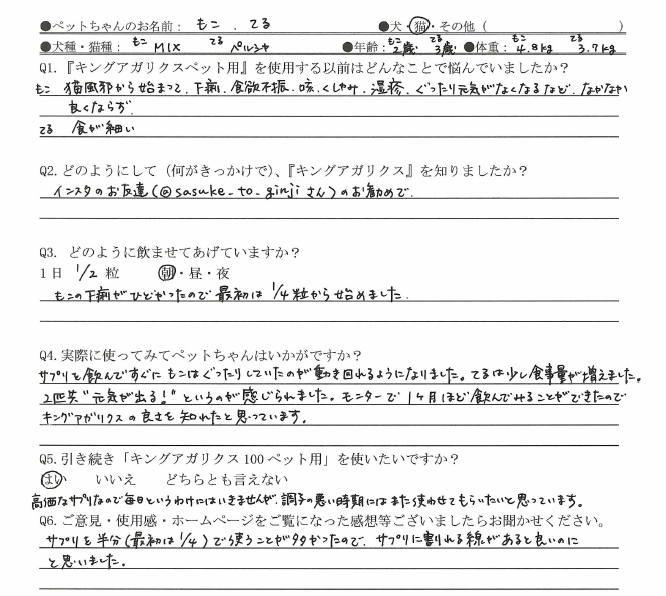 ●ペットちゃんのお名前： もこ . てる ●犬・猫・その他（ ）
●犬種・猫種： もこ MIX てる ペルシャ ●年齢： もこ 2歳 てる 3歳 ●体重： もこ 4.8kg てる 3.7kg
Q1.『キングアガリクスペット用』を使用する以前はどんなことで悩んでいましたか？
もこ 猫風邪から始まって、下痢、食欲不振、咳、くしゃみ、湿疹、ぐったり元気がなくなるなど、なかなか
良くならず。
てる 食が細い
Q2.どのようにして（何がきっかけで）、『キングアガリクス』を知りましたか？
インスタのお友達（@sasuke_to_ginjiさん）のお勧めで.
Q3. どのように飲ませてあげていますか？
1日 1/2 粒 朝・昼・夜
もこの下痢がひどかったので最初は 1/4粒から始めました.
Q4.実際に使ってみてペットちゃんはいかがですか？
サプリを飲んですぐにもこはぐったりしていたのが動き回れるようになりました。てるは少し食事量が増えました。
2匹共"元気が出る！"というのが感じられました。モニターで1ヶ月ほど飲んでみることができたので
キングアガリクスの良さを知れたと思っています。
Q5.引き続き「キングアガリクス100ペット用」を使いたいですか？
はい いいえ どちらとも言えない
高価なサプリなので毎日というわけにはいきませんが、調子の悪い時期にはまた使わせてもらいたいと思っています。
Q6.ご意見・使用感・ホームページをご覧になった感想等ございましたらお聞かせください。
サプリを半分（最初は1/4）で使うことが多かったので、サプリに割れる線があると良いのに
と思いました。